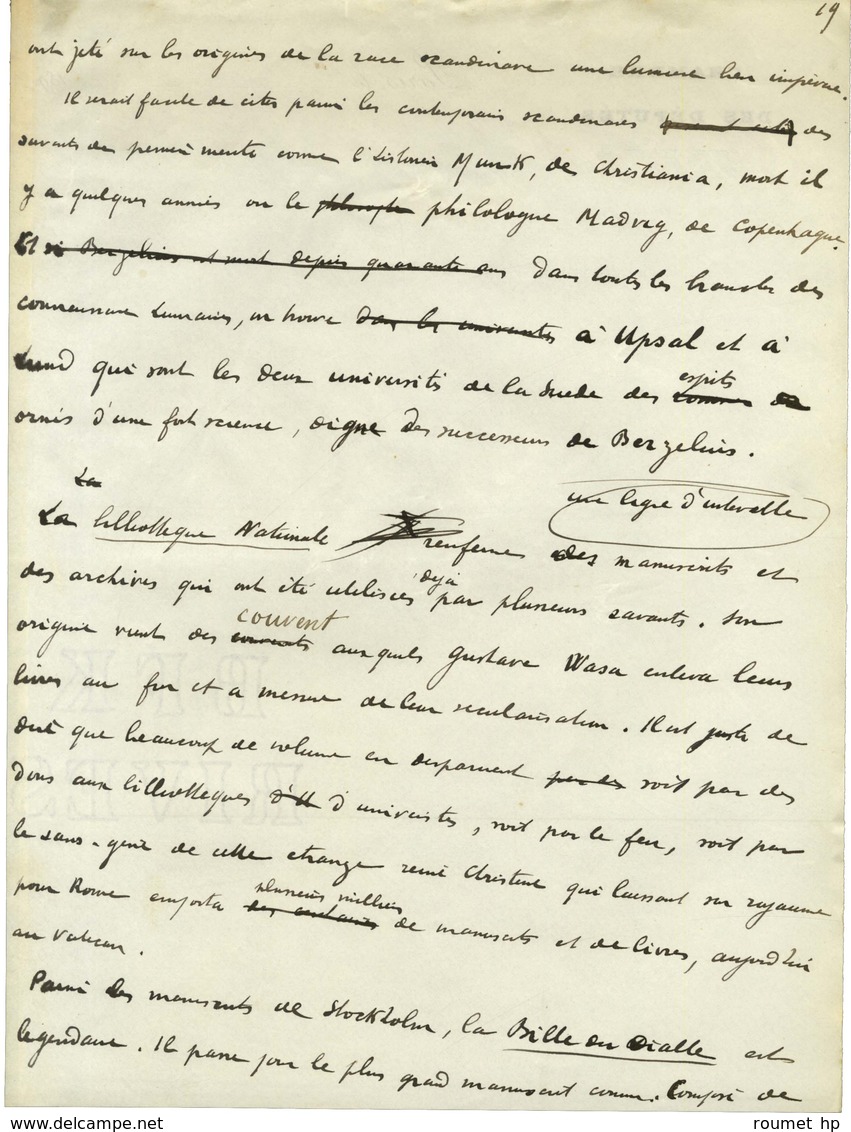 19
ont jeté sur les origines de la race scandinave une lumière bien imprévue.
Il serait facile de citer parmi les contemporains scandinaves des
savants de premier mérite comme l'historien Munk, de Christiania, mort il
y a quelques années ou le philosophe philologue Madvig, de Copenhague.
Et si Berzelius est mort depuis quarante ans Dans toutes les branches des
connaissances humaines, on trouve dans les universités à Upsal et à
Lund qui sont les deux universités de la Suède des esprits
ornés d'une forte science, digne des successeurs de Berzelius.
La
une ligne d'intervalle
La bibliothèque Nationale renferme des manuscrits et
des archives qui ont été utilisées déjà par plusieurs savants. Son
origine vient des couvents couvent auxquels Gustave Wasa enleva leurs
livres au fur et a mesure de leur secularisation. Il est juste de
dire que beaucoup de volume en disparurent soit par des
dons aux bibliothèques d'universités, soit par le feu, soit par
le sans-gêne de cette etrange reine Christine qui laissant son royaume
pour Rome emporta des centaines plusieurs milliers de manuscrits et de livres, aujourd'hui
au Vatican.
Parmi les manuscrits de Stockholm, la Bille du Dialle est
legendaire. Il passe pour le plus grand manuscrit connu. Composé de
roumet hp